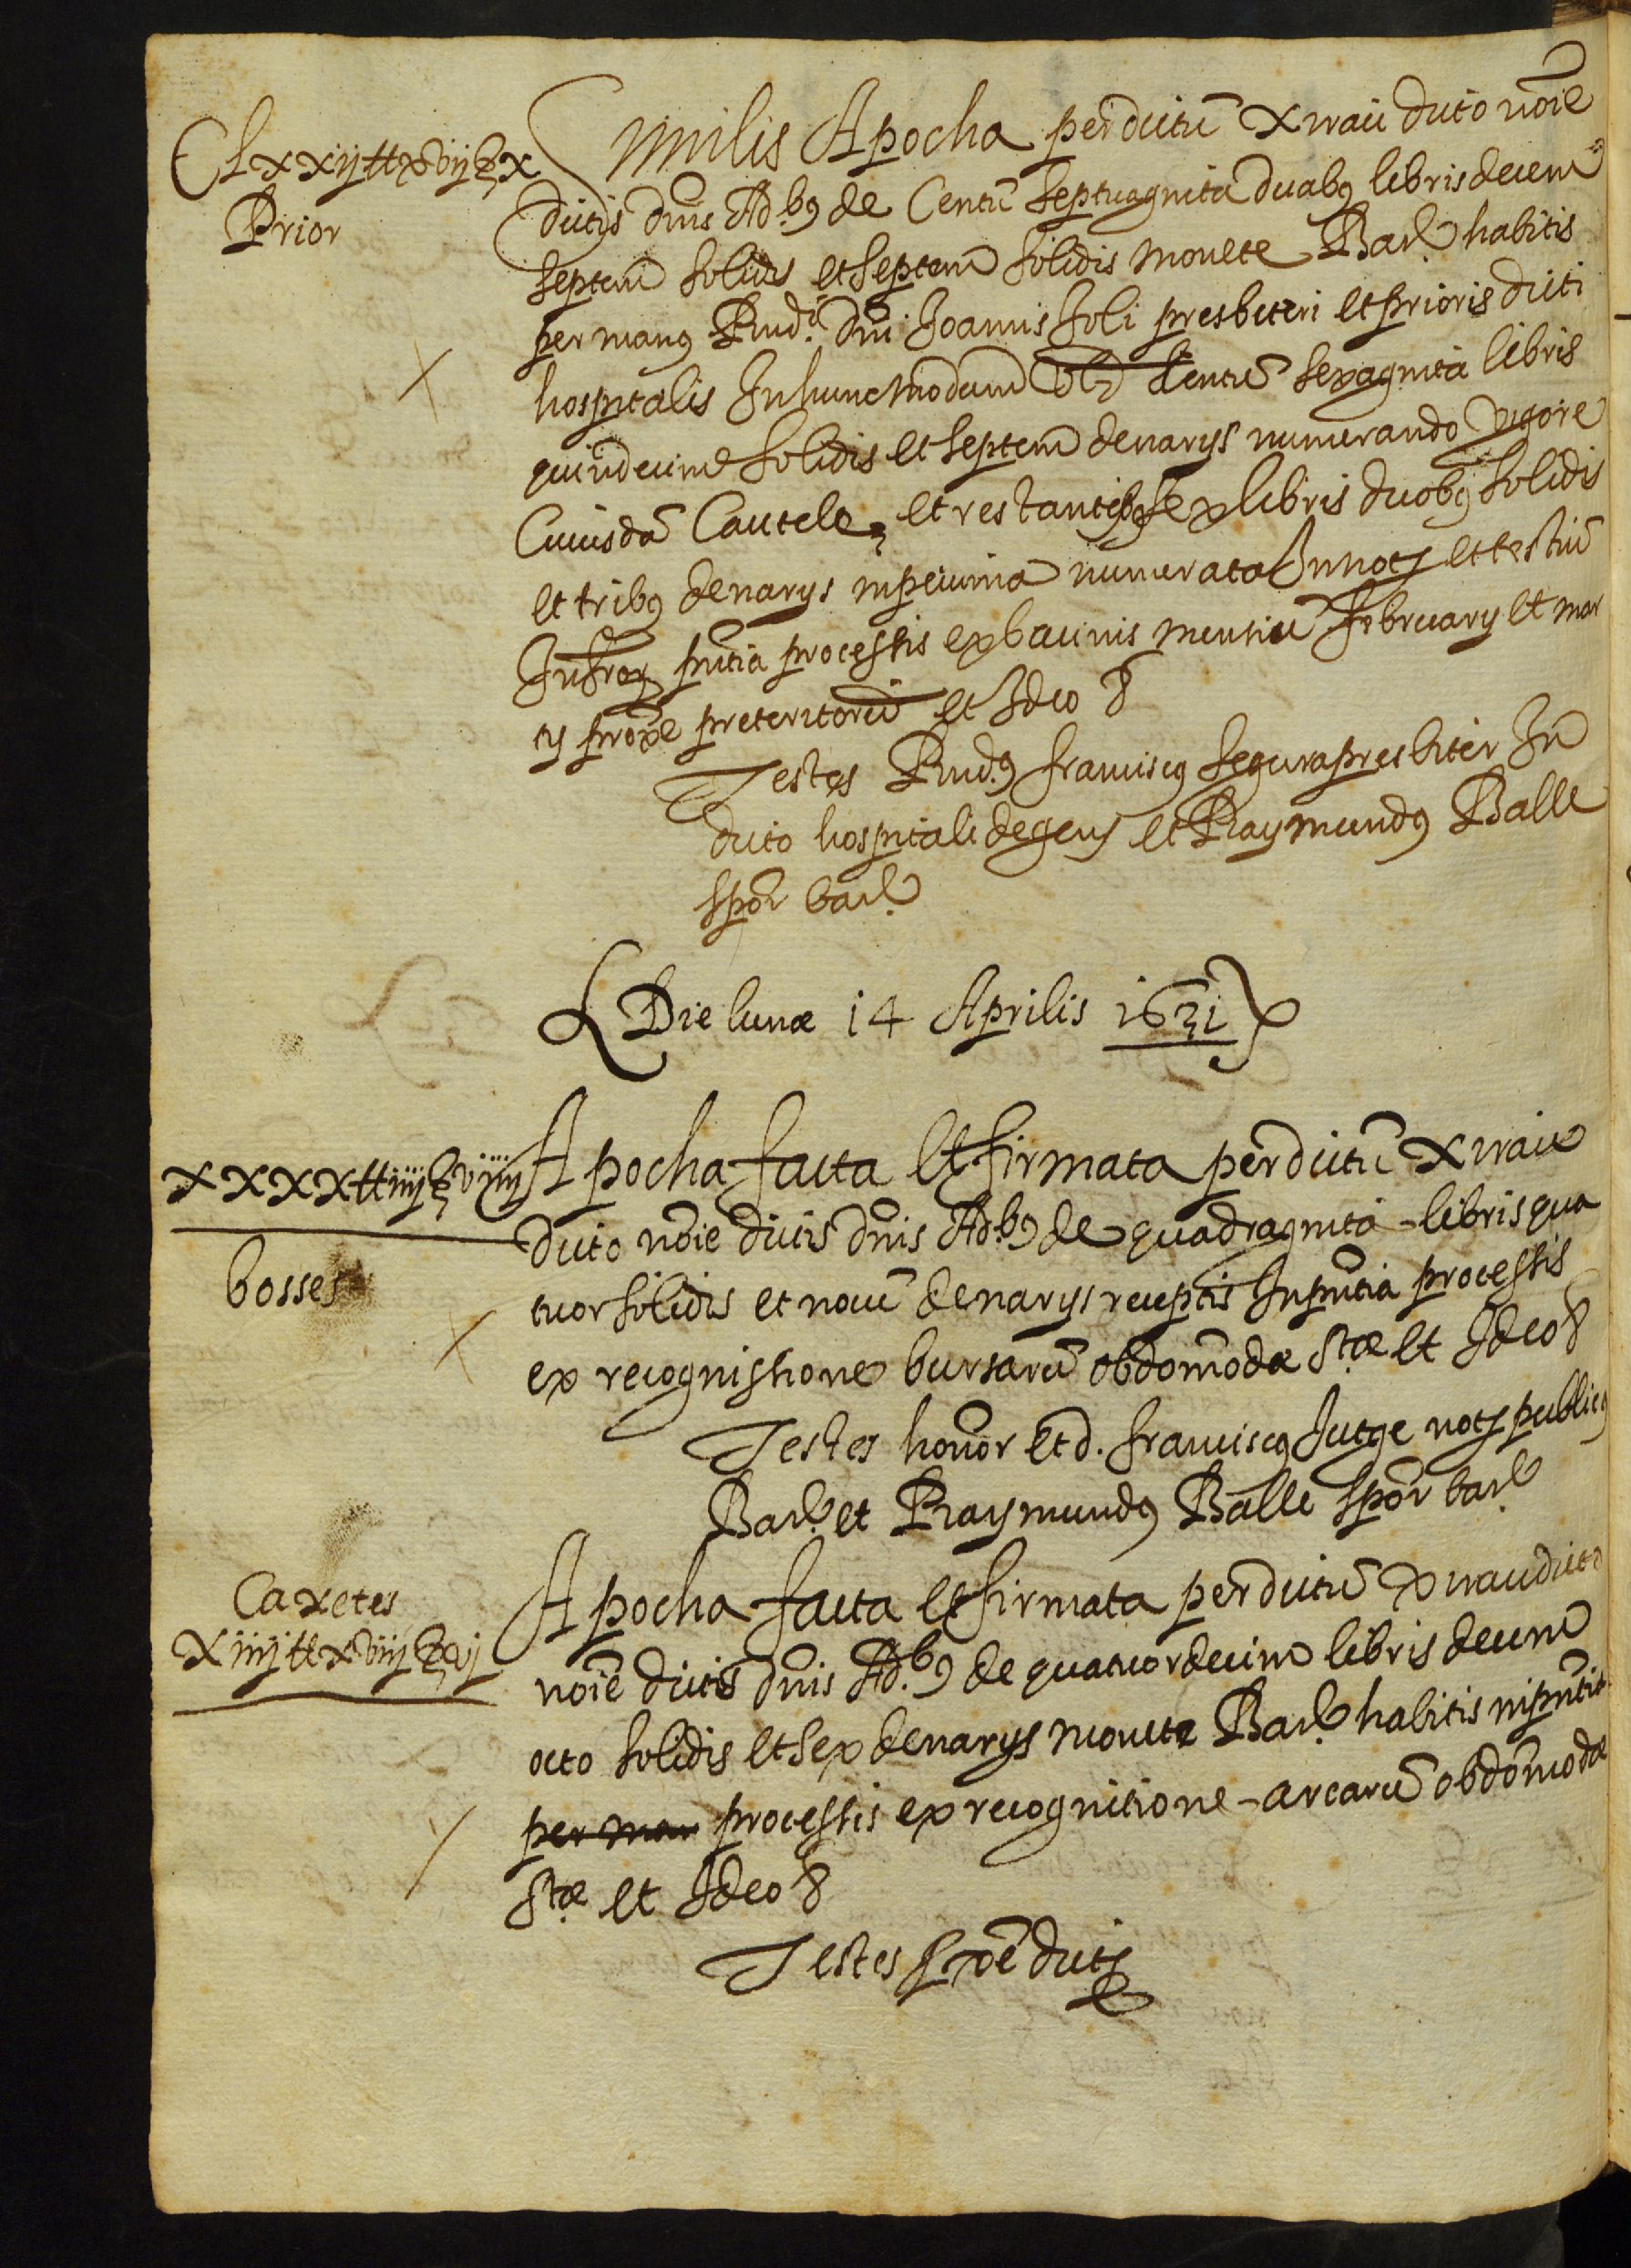 CLxxij ꝉꝉ xvij ß x
Prior
Similis Apocha per dictũ Xirau dicto nõie
dictis dñis Adb9 de Centũ septuaginta duab9 libris decem
septem solidis et septem solidis monete Barl. habitis
per man9 Rndi. dñi Joannis soli presbiteri et prioris dicti
hospitalis In hunc modum Centũ sexaginta libris
quindecim solidis et septem denarys numerando vigore
Cuiusdã Cautele, et restantib9 sex libris duob9 solidis
et tribus denarys in peccunia numerata In not. et testiũ
Infror. pñtia processis ex bacinis mensiũ februarij et mar
tij prõxe preteritorũ et Ideo &
Testes Rnd9 francisc9 segura presbiter In
dicto hospitali degens et Raymund9 Balle
spõr barl.
Die lunæ 14 Aprilis 1631
xxxx ꝉꝉ iiij ß viiij
bosses
Apocha facta et firmata per dictũ Xirau
dicto nõie dictis dñis Adb9 de quadraginta libris qua
tuor solidis et nouẽ denarys receptis In pñtia processis
ex recognistione bursarũ obdõmodæ Stæ et Ideo &
Testes honor et d. francisc9 Jutge not. public9
Barl. et Raymund9 Balle spõr barl.
Caxetes
xiiij ꝉꝉ xviij ß vj
Apocha facta et firmata per dictũ Xirau dicto
nõie dictis dñis Adb9 de quatuordecim libris decem
octo solidis et sex denarys monete Barl. habitis in pñtia
per man processis ex recognitione arcarũ obdõmodæ
Stæ et Ideo &
Testes prõxe dicti